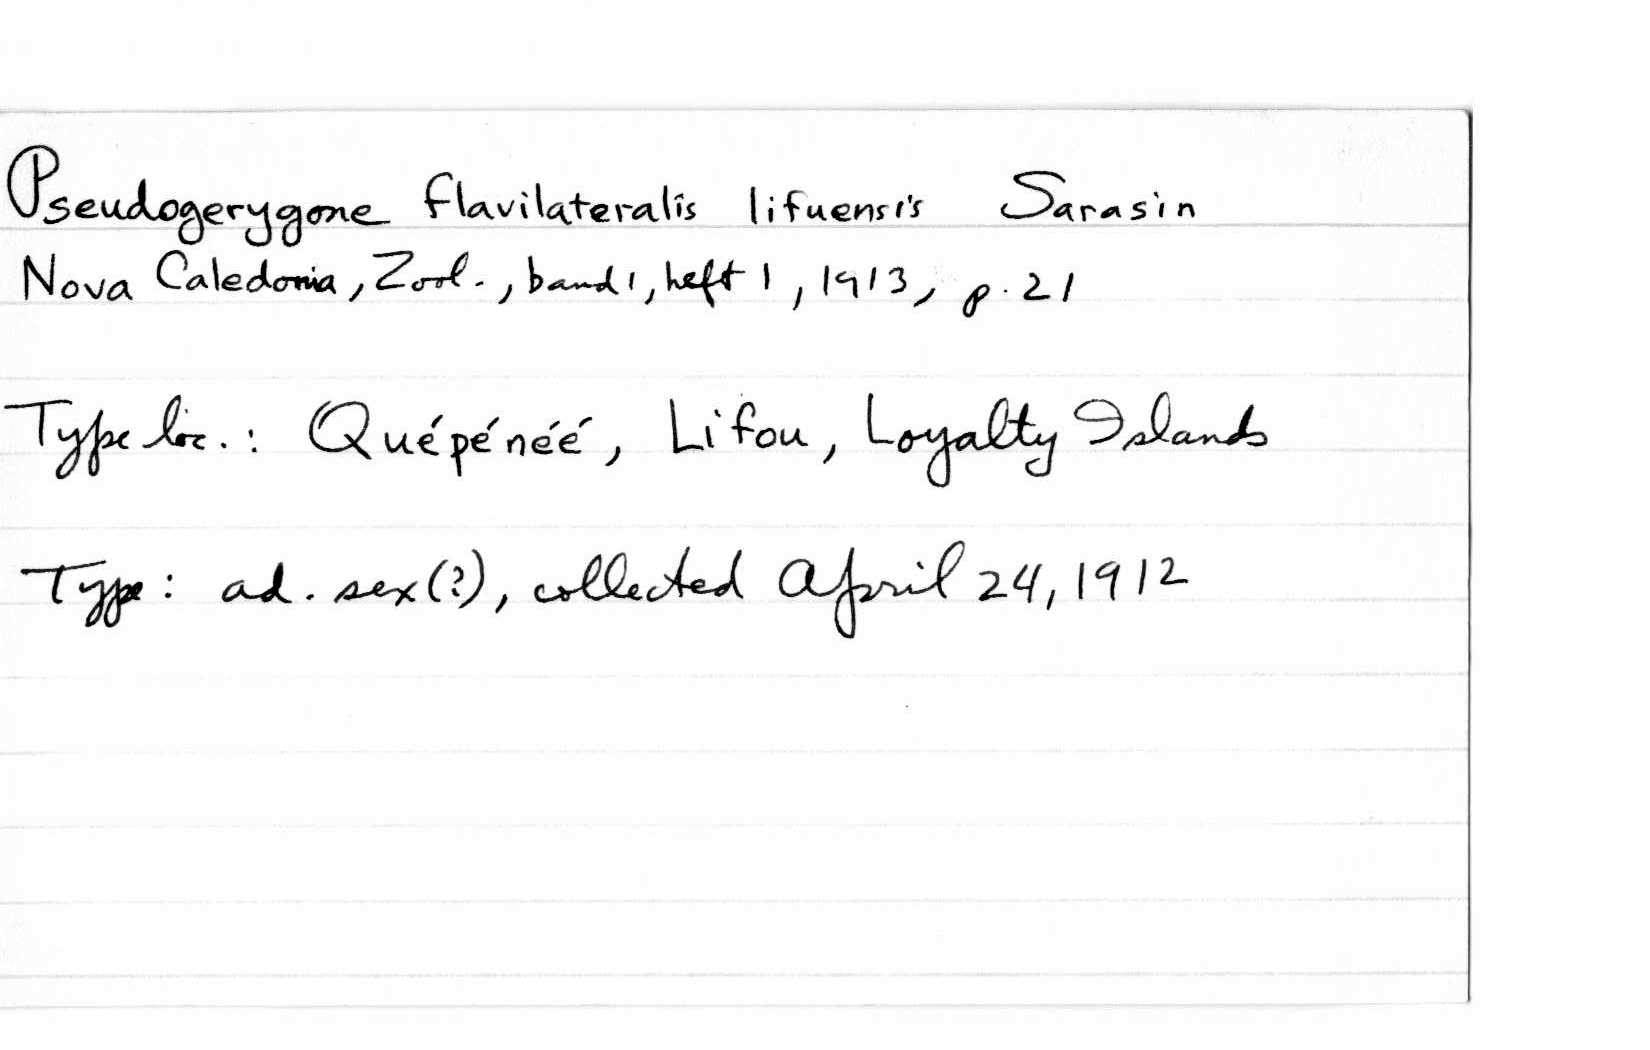 Pseudogerygone flavilateralis lifuensis Sarasin
Nova Caledonia, Zool., band 1, heft 1, 1913, p. 21
Type loc.: Quépénéé, Lifou, Loyalty Islands
Type: ad. sex(?), collected April 24, 1912